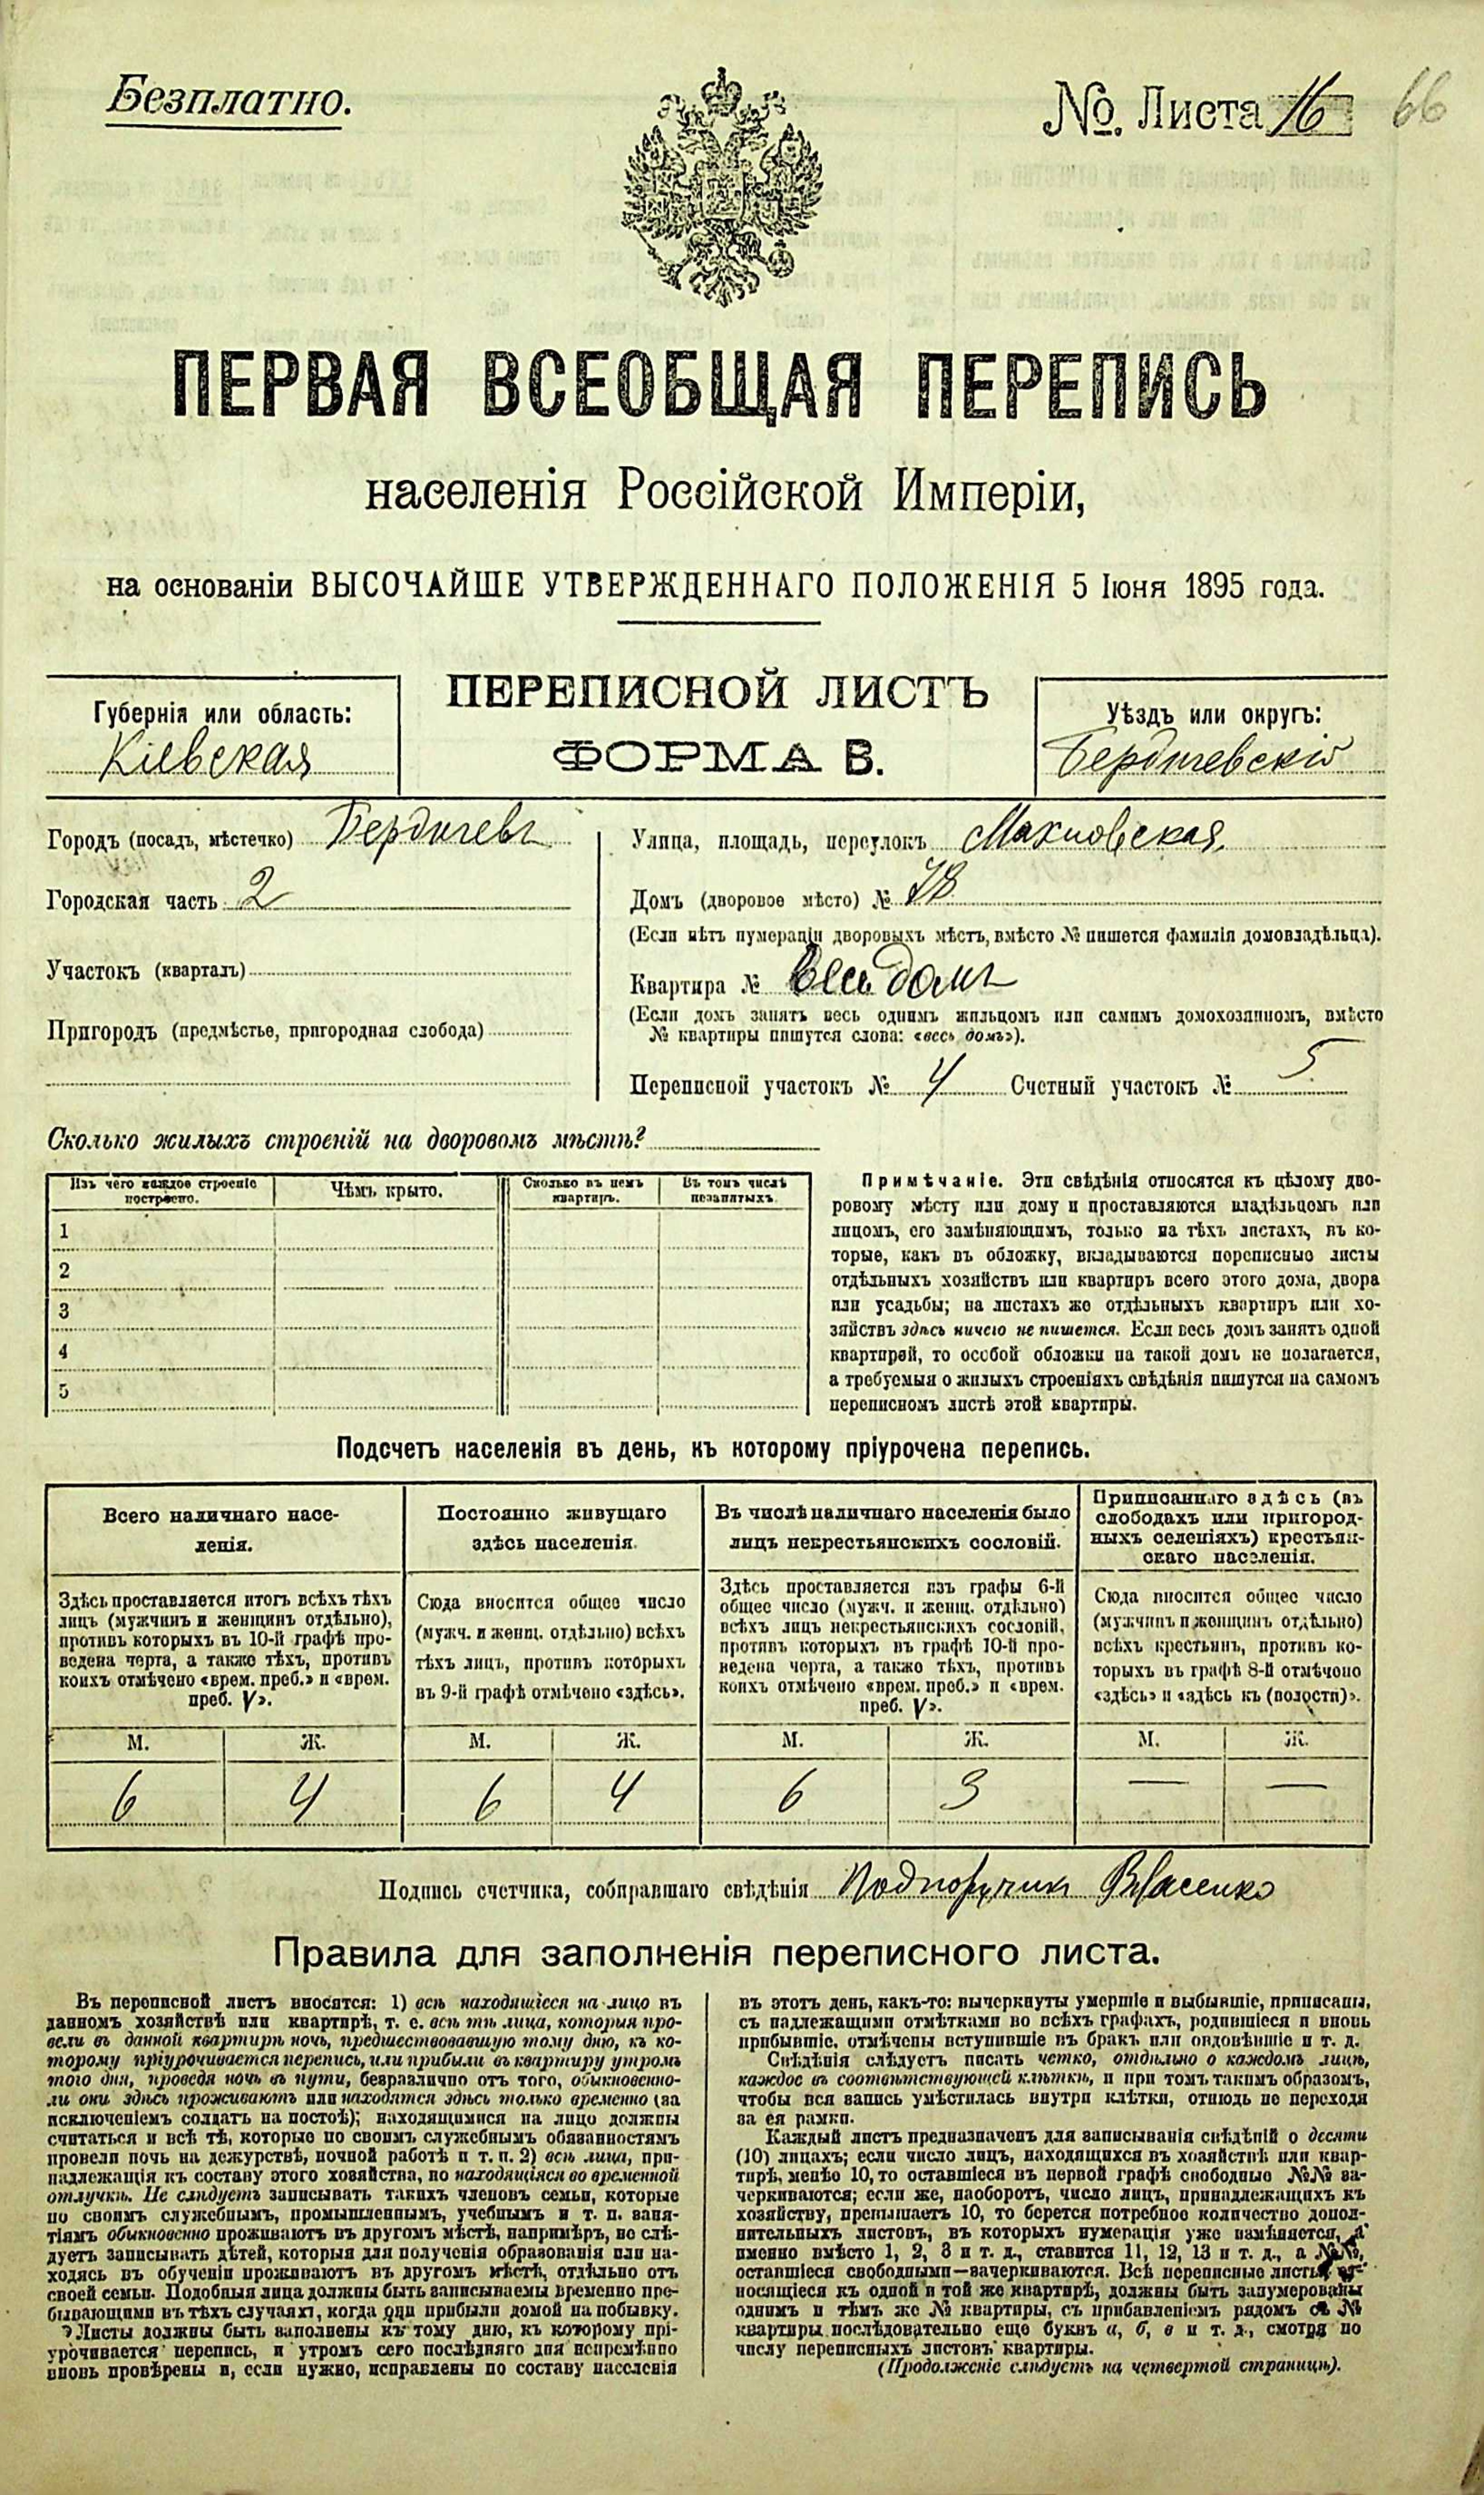 Безплатно.
№. Листа 16 66
ПЕРВАЯ ВСЕОБЩАЯ ПЕРЕПИСЬ
населенія Россійской Имперіи,
на основаніи ВЫСОЧАЙШЕ УТВЕРЖДЕННАГО ПОЛОЖЕНІЯ 5 Іюня 1895 года.
ПЕРЕПИСНОЙ ЛИСТЪ
ФОРМА В.
Губернія или область:
Кіевская
Уѣздъ или округъ:
Бердичевскій
Городъ (посадъ, мѣстечко) Бердичевъ
Городская часть 2
Участокъ (кварталъ)
Пригородъ (предмѣстье, пригородная слобода)
Улица, площадь, переулокъ Махновская
Домъ (дворовое мѣсто) № 78
(Если нѣтъ нумераціи дворовыхъ мѣстъ, вмѣсто № пишется фамилія домовладѣльца).
Квартира № Весь домъ
(Если домъ занятъ весь однимъ жильцомъ или самимъ домохозяиномъ, вмѣсто
№ квартиры пишутся слова: «весь домъ»).
Переписной участокъ № 4 Счетный участокъ № 5
Сколько жилыхъ строеній на дворовомъ мѣстѣ?
Изъ чего каждое строеніе
построено.
Чѣмъ крыто.
Сколько въ немъ
квартиръ.
Въ томъ числѣ
незанятыхъ.
1
2
3
4
5
Примѣчаніе. Эти свѣдѣнія относятся къ цѣлому дво-
ровому мѣсту или дому и проставляются владѣльцомъ или
лицомъ, его замѣняющимъ, только на тѣхъ листахъ, въ ко-
торые, какъ въ обложку, вкладываются переписные листы
отдѣльныхъ хозяйствъ или квартиръ всего этого дома, двора
или усадьбы; на листахъ же отдѣльныхъ квартиръ или хо-
зяйствъ здѣсь ничего не пишется. Если весь домъ занятъ одной
квартирой, то особой обложки на такой домъ не полагается,
а требуемыя о жилыхъ строеніяхъ свѣдѣнія пишутся на самомъ
переписномъ листѣ этой квартиры.
Подсчетъ населенія въ день, къ которому пріурочена перепись.
Всего наличнаго насе-
ленія.
Здѣсь проставляется итогъ всѣхъ тѣхъ
лицъ (мужчинъ и женщинъ отдѣльно),
противъ которыхъ въ 10-й графѣ про-
ведена черта, а также тѣхъ, противъ
коихъ отмѣчено «врем. преб.» и «врем.
преб. V».
Постоянно живущаго
здѣсь населенія.
Сюда вносится общее число
(мужч. и женщ. отдѣльно) всѣхъ
тѣхъ лицъ, противъ которыхъ
въ 9-й графѣ отмѣчено «здѣсь».
Въ числѣ наличнаго населенія было
лицъ некрестьянскихъ сословій.
Здѣсь проставляется изъ графы 6-й
общее число (мужч. и женщ. отдѣльно)
всѣхъ лицъ некрестьянскихъ сословій,
противъ которыхъ въ графѣ 10-й про-
ведена черта, а также тѣхъ, противъ
коихъ отмѣчено «врем. преб.» и «врем.
преб. V».
Приписаннаго здѣсь (въ
слободахъ или пригород-
ныхъ селеніяхъ) крестьян-
скаго населенія.
Сюда вносится общее число
(мужчинъ и женщинъ отдѣльно)
всѣхъ крестьянъ, противъ ко-
торыхъ въ графѣ 8-й отмѣчено
«здѣсь» и «здѣсь къ (волости)».
М. Ж. М. Ж. М. Ж. М. Ж.
6 4 6 4 6 3 — —
Подпись счетчика, собиравшаго свѣдѣнія Подпоручик Власенко
Правила для заполненія переписного листа.
Въ переписной листъ вносятся: 1) всѣ находящіеся на лицо въ
данномъ хозяйствѣ или квартирѣ, т. е. всѣ тѣ лица, которыя про-
вели въ данной квартирѣ ночь, предшествовавшую тому дню, къ ко-
торому пріурочивается перепись, или прибыли въ квартиру утромъ
того дня, проведя ночь въ пути, безразлично отъ того, обыкновенно-
ли они здѣсь проживаютъ или находятся здѣсь только временно (за
исключеніемъ солдатъ на постоѣ); находящимися на лицо должны
считаться и всѣ тѣ, которые по своимъ служебнымъ обязанностямъ
провели ночь на дежурствѣ, ночной работѣ и т. п. 2) всѣ лица, при-
надлежащія къ составу этого хозяйства, но находящіяся во временной
отлучкѣ. Не слѣдуетъ записывать такихъ членовъ семьи, которые
по своимъ служебнымъ, промышленнымъ, учебнымъ и т. п. заня-
тіямъ обыкновенно проживаютъ въ другомъ мѣстѣ, напримѣръ, не слѣ-
дуетъ записывать дѣтей, которыя для полученія образованія или на-
ходясь въ обученіи проживаютъ въ другомъ мѣстѣ, отдѣльно отъ
своей семьи. Подобныя лица должны быть записываемы временно пре-
бывающими въ тѣхъ случаяхъ, когда они прибыли домой на побывку.
Листы должны быть заполнены къ тому дню, къ которому прі-
урочивается перепись, и утромъ сего послѣдняго дня непремѣнно
вновь провѣрены и, если нужно, исправлены по составу населенія
въ этотъ день, какъ-то: вычеркнуты умершіе и выбывшіе, приписаны,
съ надлежащими отмѣтками во всѣхъ графахъ, родившіеся и вновь
прибывшіе, отмѣчены вступившіе въ бракъ или овдовѣвшіе и т. д.
Свѣдѣнія слѣдуетъ писать четко, отдѣльно о каждомъ лицѣ,
каждое въ соотвѣтствующей клѣткѣ, и при томъ такимъ образомъ,
чтобы вся запись умѣстилась внутри клѣтки, отнюдь не переходя
за ея рамки.
Каждый листъ предназначенъ для записыванія свѣдѣній о десяти
(10) лицахъ; если число лицъ, находящихся въ хозяйствѣ или квар-
тирѣ, менѣе 10, то оставшіеся въ первой графѣ свободные №№ за-
черкиваются; если же, наоборотъ, число лицъ, принадлежащихъ къ
хозяйству, превышаетъ 10, то берется потребное количество допол-
нительныхъ листовъ, въ которыхъ нумерація уже измѣняется, а
именно вмѣсто 1, 2, 3 и т. д., ставится 11, 12, 13 и т. д., а №№,
оставшіеся свободными—зачеркиваются. Всѣ переписные листы, от-
носящіеся къ одной и той же квартирѣ, должны быть занумерованы
однимъ и тѣмъ же № квартиры, съ прибавленіемъ рядомъ съ №
квартиры послѣдовательно еще буквъ а, б, в и т. д., смотря по
числу переписныхъ листовъ квартиры.
(Продолженіе слѣдуетъ на четвертой страницѣ).